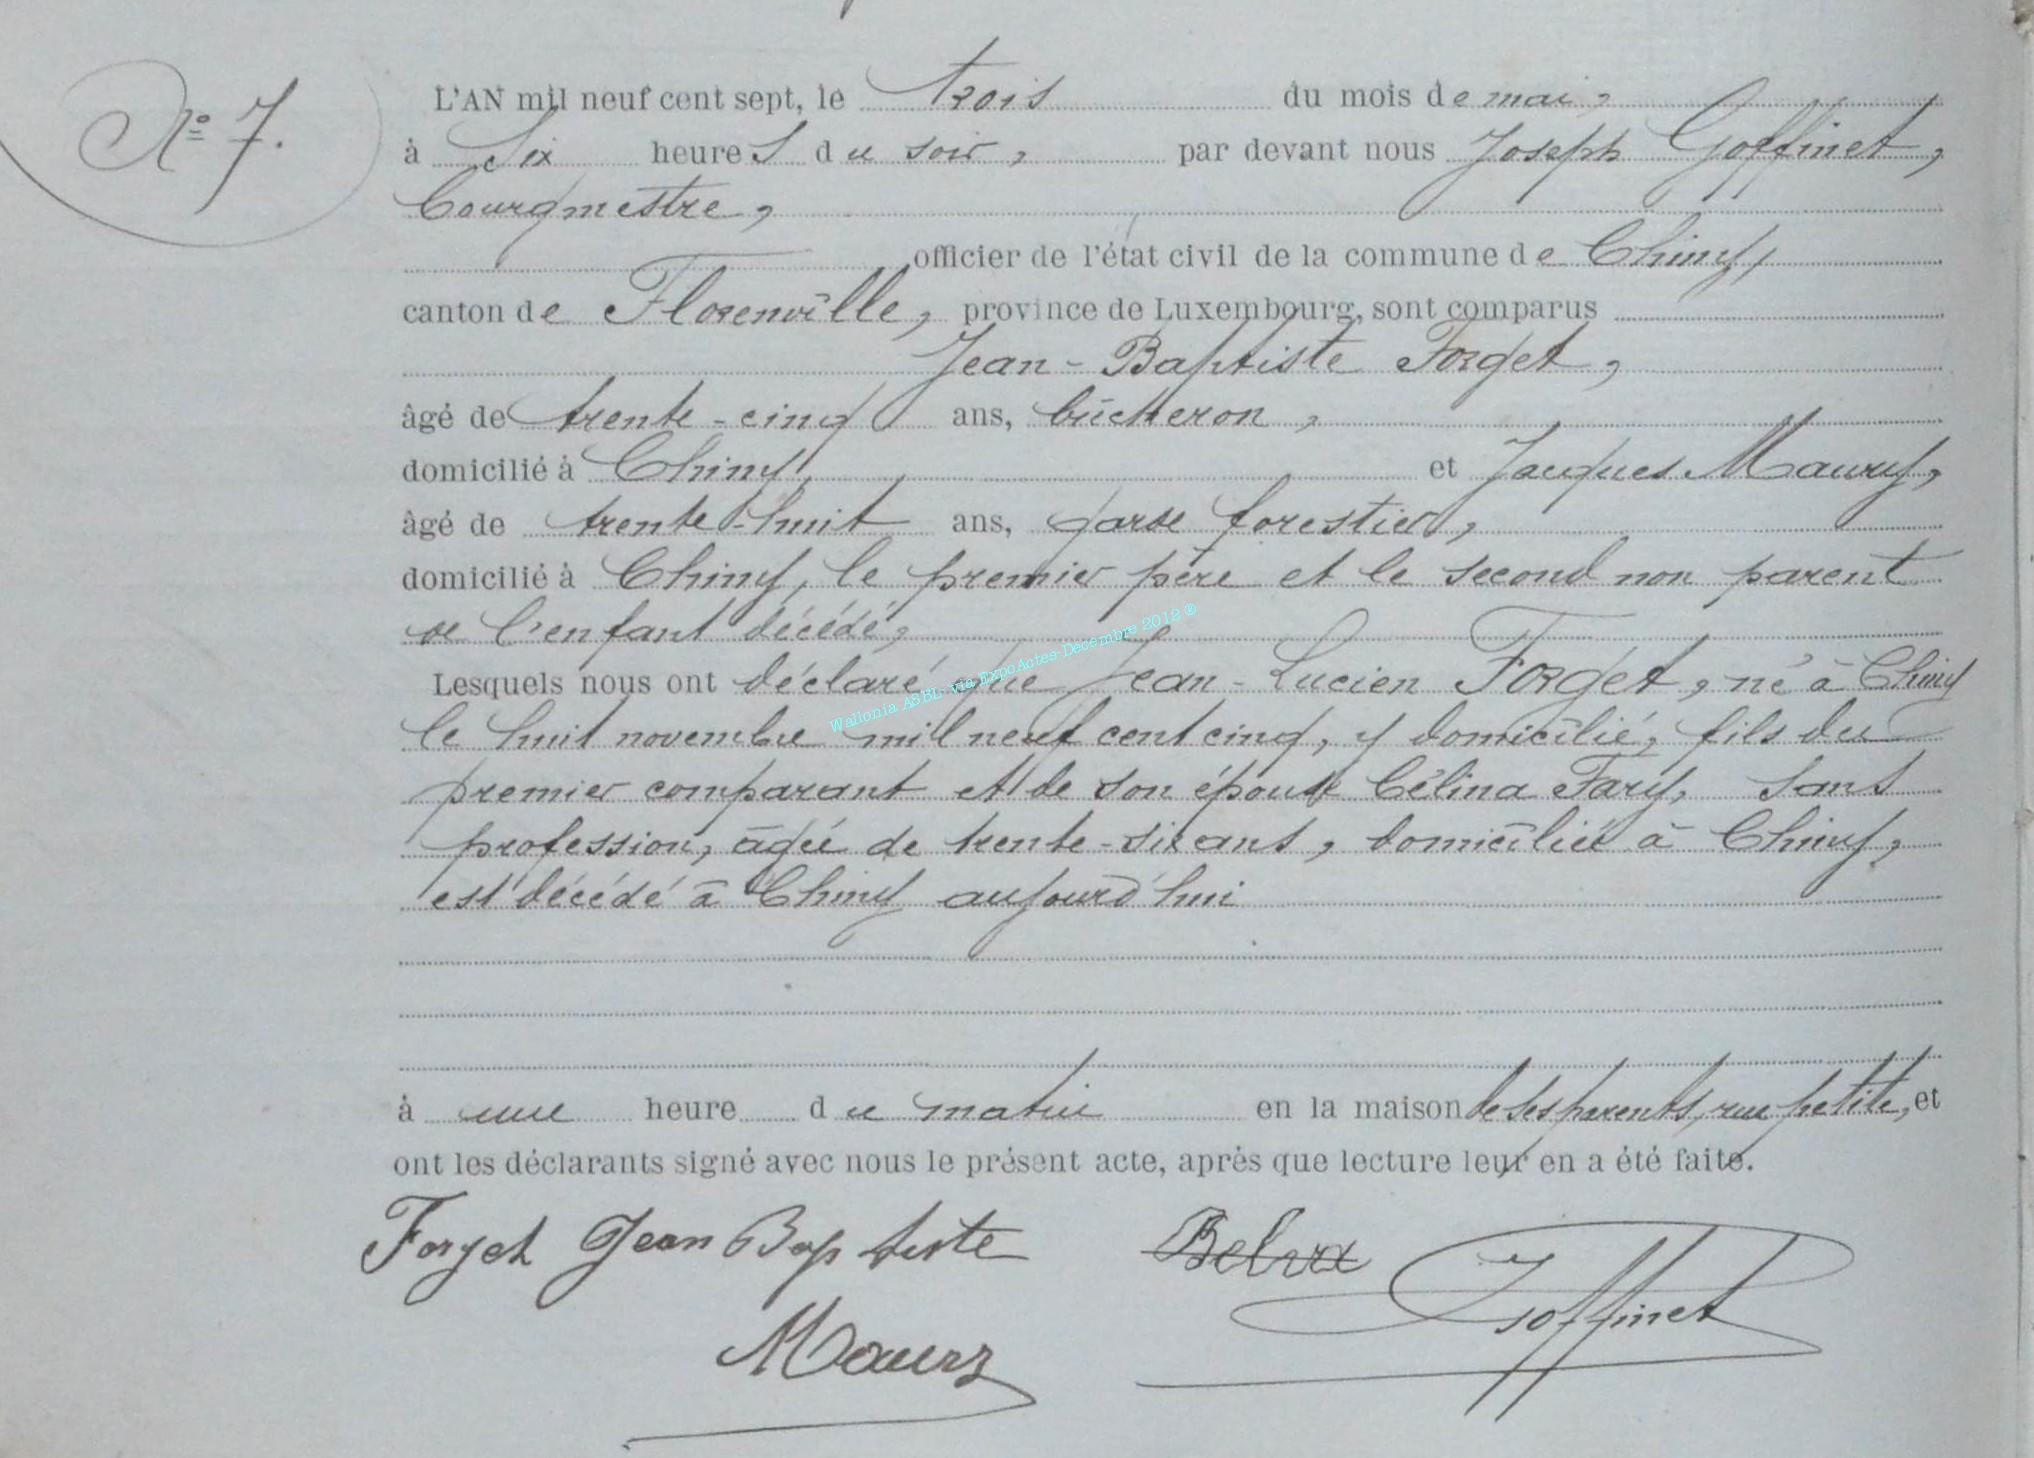 N° 7.
L'AN mil neuf cent sept, le trois du mois de mai,
à six heures du soir, par devant nous Joseph Goffinet,
bourgmestre,
officier de l'état civil de la commune de Chiny,
canton de Florenville, province de Luxembourg, sont comparus
Jean-Baptiste Forget,
âgé de trente-cinq ans, bûcheron,
domicilié à Chiny, et Jacques Maury,
âgé de trente-huit ans, garde forestier,
domicilié à Chiny, le premier père et le second non parent
de l'enfant décédé,
Lesquels nous ont déclaré que Jean-Lucien Forget, né à Chiny
le huit novembre mil neuf cent cinq, y domicilié, fils du
premier comparant et de son épouse Célina Fary, sans
profession, âgée de trente-six ans, domiciliée à Chiny,
est décédé à Chiny aujourd'hui
à une heure du matin en la maison de ses parents, rue petite, et
ont les déclarants signé avec nous le présent acte, après que lecture leur en a été faite.
Forget Jean Baptiste
Goffinet
Maury
Wallonia ASBL via ExpoActes-Decembre 2012 ®